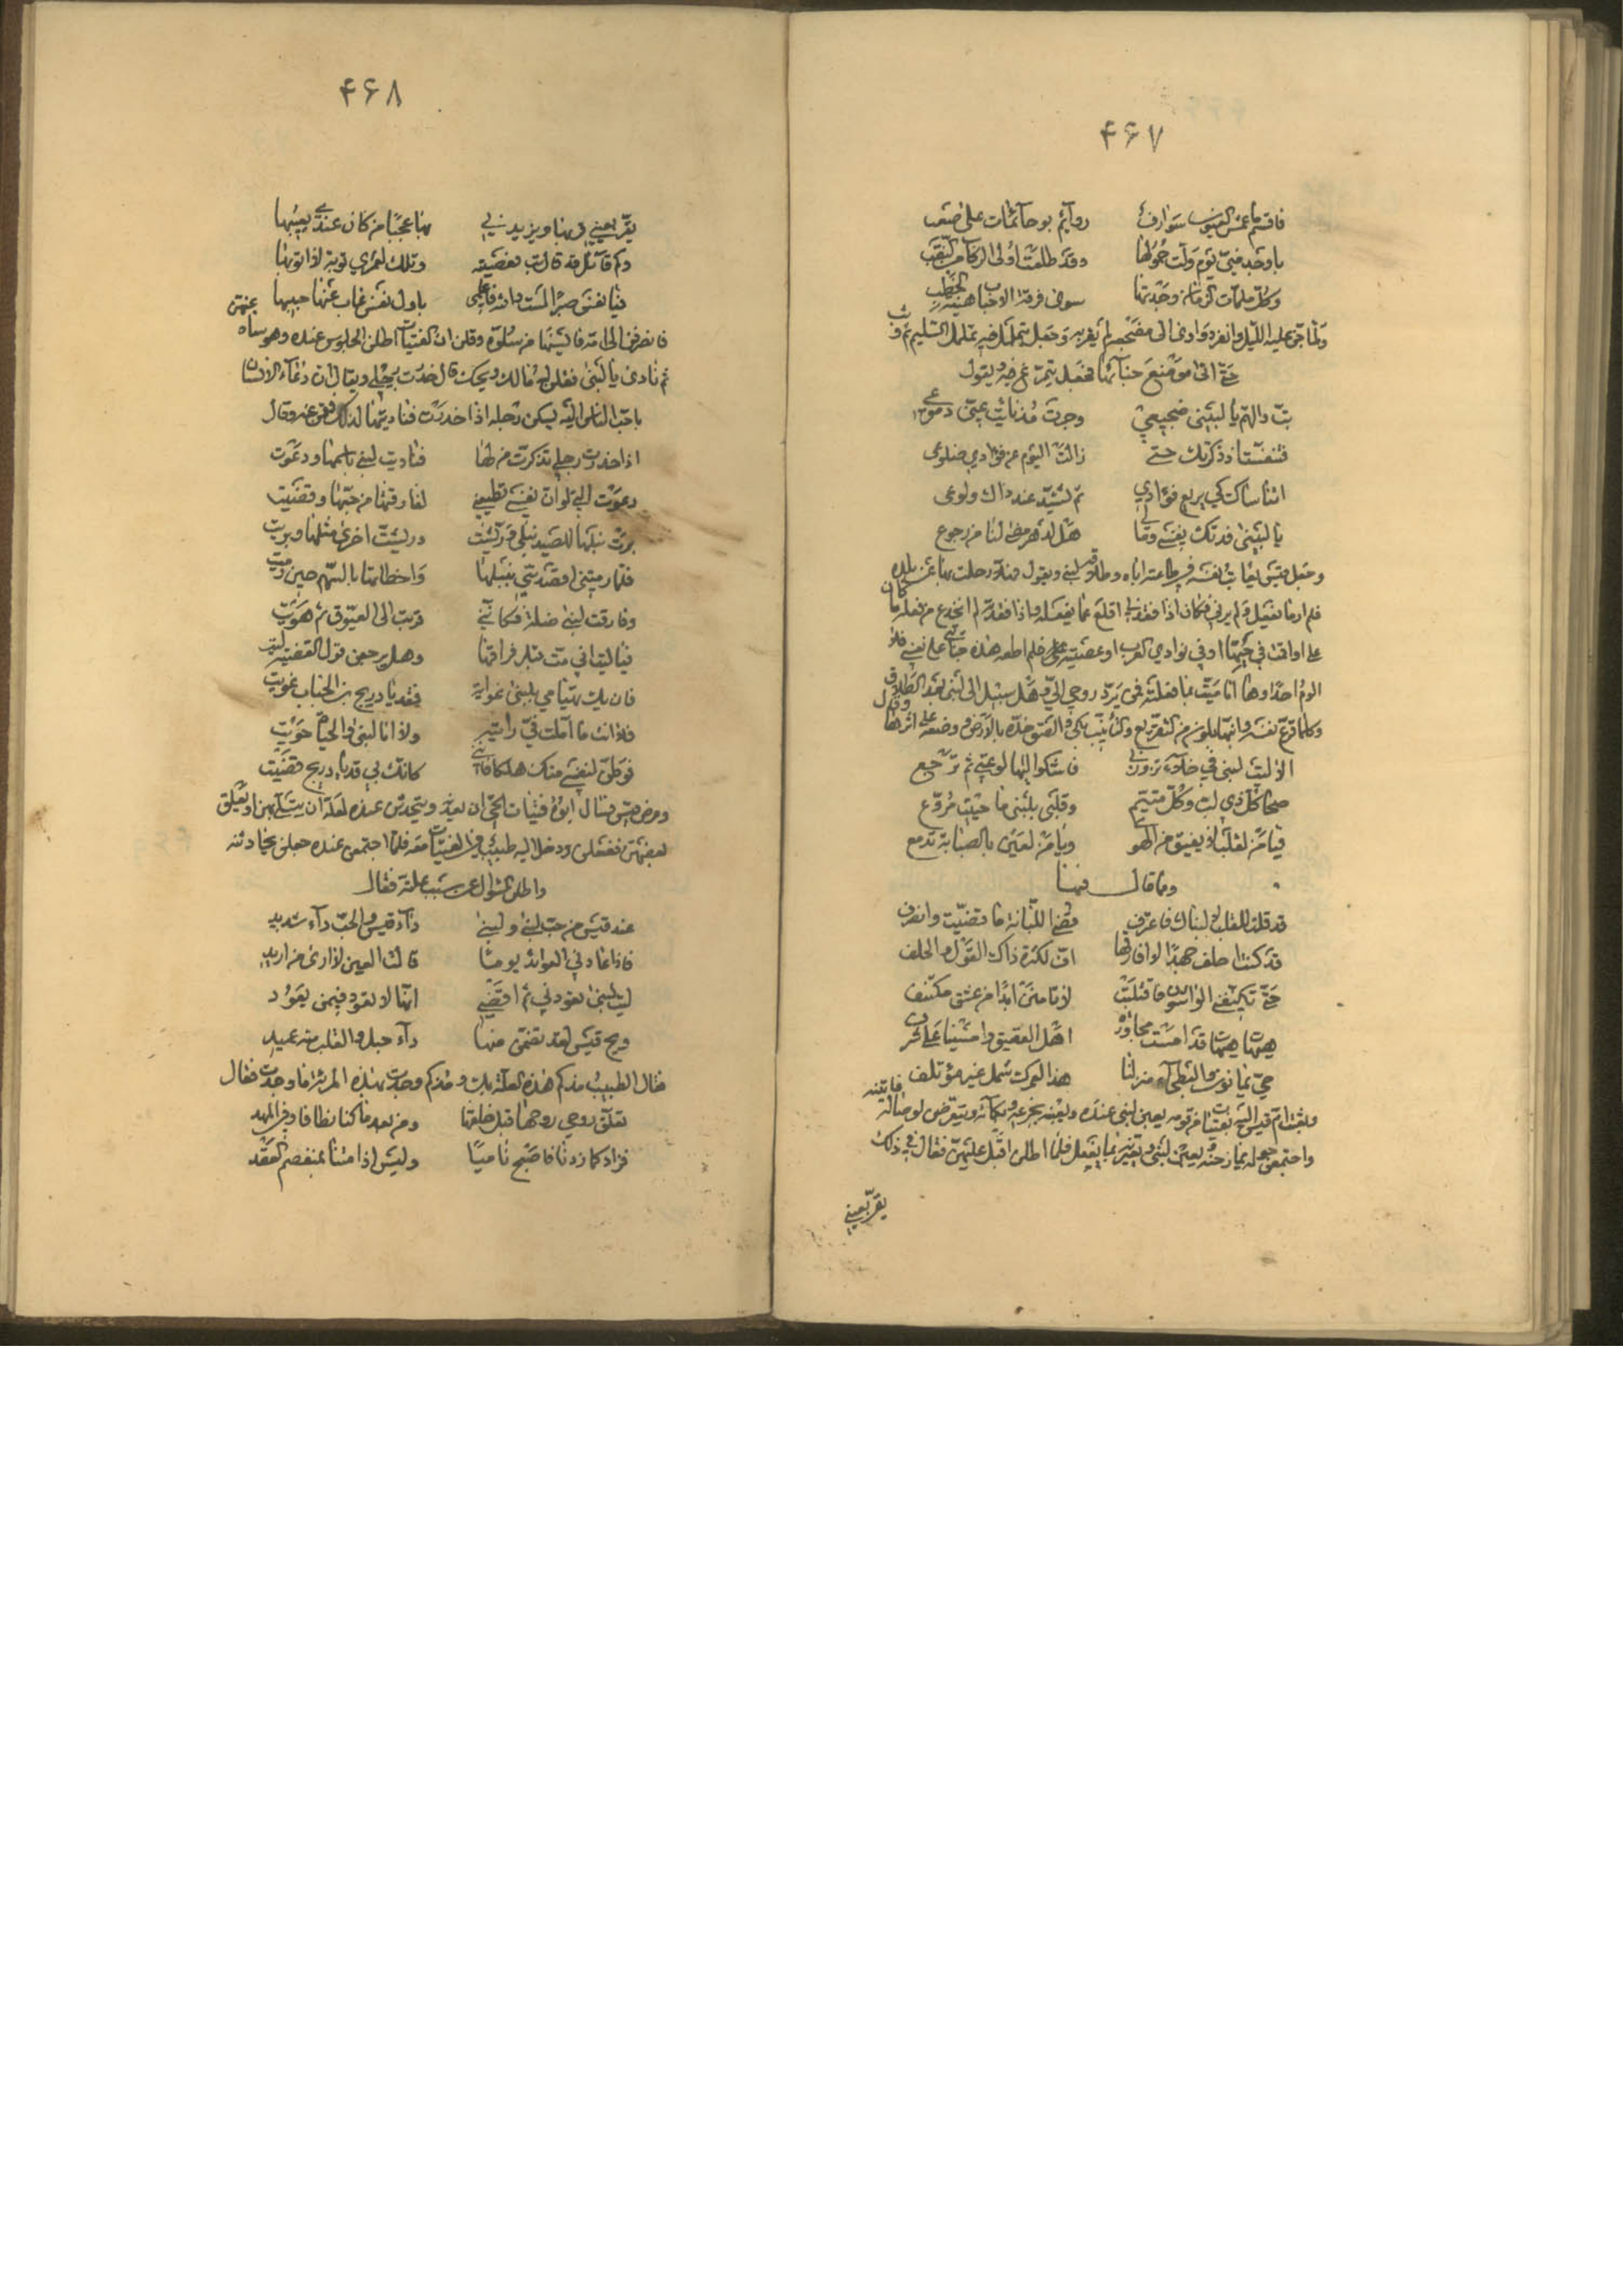 ۴۶۷
فاقسم ما عمش العيون شوارف روآئم بو حآئمات على صعب
باوجد منى يوم ولت حمولها وقد طلعت اولى الركاب من النقب
وكل ملمات الزمان وجدتها سوى فرقة الاحباب هينة الخطب
ولما جن عليه الليل وانفرد واوى الى مضجعه لم يقر به وجعل يتململ فيه تململ السليم ثم وثب
حتى اتى موضع خبآئها فجعل يتمرغ فيه ويقول
بت والهم يا لبينى ضجيعي وجرت مذ نايت عنى دموعي
فتنفست اذ ذكرتك حتى زالت اليوم عن فؤادي ضلوعى
اتناساك كي يريع فؤادي ثم تشتد عند ذاك ولوعى
يا لبينى فدتك نفسى ومالى هل لدهر مضى لنا من رجوع
وجعل قيس يعاتب نفسه في طاعته اباه وطلاقه لبنى ويقول فهلا رحلت بها عن بلده
فلم ار ما يفعل ولم يرنى فكان اذا فقدنى اقلع عما يفعله واذا فقدته لم اتحرج من فعله وما كان
على لو اقمت في حيها او في بوادي العرب او عصيته فلم اطعه هذه جنايتى على نفسى فلا
الوم احدا وها انا ميت بما فعلته فمن يرد روحي الي وهل سبيل الى لبنى بعد الطلاق
وكلما قرع نفسه وانبها بلون من التقريع والتأنيب بكى والصق خده بالارض ووضعه على اثرها وقال
الا ليت لبنى في خلاء تزورنى فاشكو اليها لوعتي ثم ترجع
صحا كل ذي لب وكل متيم وقلبى بلبنى ما حييت مروع
فيا من لقلب لا يفيق من الهوى ويا من لعين بالصبابة تدمع
ومما قال فيها
قد قلت للقلب لا لبناك فاعترف فقضى اللبانة ما قضيت وانصرف
قد كنت احلف جهدا لا افارقها اف لكثرة ذاك القول والحلف
حتى تكنفنى الواشون فافتلتت لا تامنن ابدا من غش مكتنف
هيهات هيهات قد امست مجاورة اهل العقيق وامسينا على سرف
حي يمانون والبطحآء منزلنا هذا لعمرك شمل غير مؤتلف
وبعثت ام قيس اليه بفتيات من قومه يعبن لبنى عنده ويعبنه بجزعه وبكآئه ويتعرضن لوصاله فاتينه
واجتمعن حوله يمازحنه ويعبن لبنى ويعيرنه بما يفعل فلما اطلن اقبل عليهن فقال في ذلك
يقر بعيني
۴۶۸
يقر بعيني قربها ويزيدنى بها عجبا من كان عندي يعيبها
وكم قآئل قد قال تب فعصيته وتلك لعمري توبة لا اتوبها
فيا نفس صبرا لست والله فاعلمى باول نفس غاب عنها حبيبها
فانصرفن الى امه فايسنها من سلوه وقلن ان الفتيات اطلن الجلوس عنده وهو ساه عنهن
ثم نادى يا لبنى فقلن له مالك ويحك قال خدرت رجلي ويقال ان دعآء الانسان
باحب الناس اليه يسكن رجله اذا خدرت فناديتها لذلك فقمن عنه وقال
اذا خدرت رجلي تذكرت من لها فناديت لبنى باسمها ودعوت
دعوت التى لو ان نفسي تطيعني لفارقتها من حبها وقضيت
برت نبلها للصيد لبنى وريشت وريشت اخرى مثلها وبريت
فلما رمتنى اقصدتنى بنبلها واخطاتها بالسهم حين رميت
وفارقت لبنى ضلة فكاننى قربت الى العيوق ثم هويت
فيا ليت انى مت قبل فراقها وهل يرجعن قول القضية ليت
فان يك تهيامي بلبنى غواية فقد يا ذريح بن الحباب غويت
فلا انت ما املت في رايته ولا انا لبنى والحياة حويت
فوطن لنفسى منك هلكا فاننى كانك بي قد يا ذريح قضيت
ومرض قيس فسال ابوه فتيات الحي ان يعدنه ويتحدثن عنده لعله ان يتسلى بهن او يعلق
بعضهن ففعلن ودخل اليه طبيب من الفتيات معه فلما اجتمعن عنده جعلن يحادثنه
واطلن السؤال عن سبب علته فقال
عند قيس من حب لبنى ولبنى دآء قيس والحب دآء شديد
فاذا عادنى العوائد يوما قالت العين لا ارى من اريد
ليت لبنى تعودنى ثم اقضى انها لا تعود فيمن يعود
ويح قيس لقد تضمن منها دآء خبل والقلب منه عميد
فقال الطبيب مذ كم هذه العلة بك ومذ كم وجدت بهذه المراة ما وجدت فقال
تعلق روحي روحها قبل خلقنا ومن بعد ما كنا نطافا وفى المهد
فزاد كما زدنا فاصبح ناميا وليس اذا متنا بمنفصم العقد